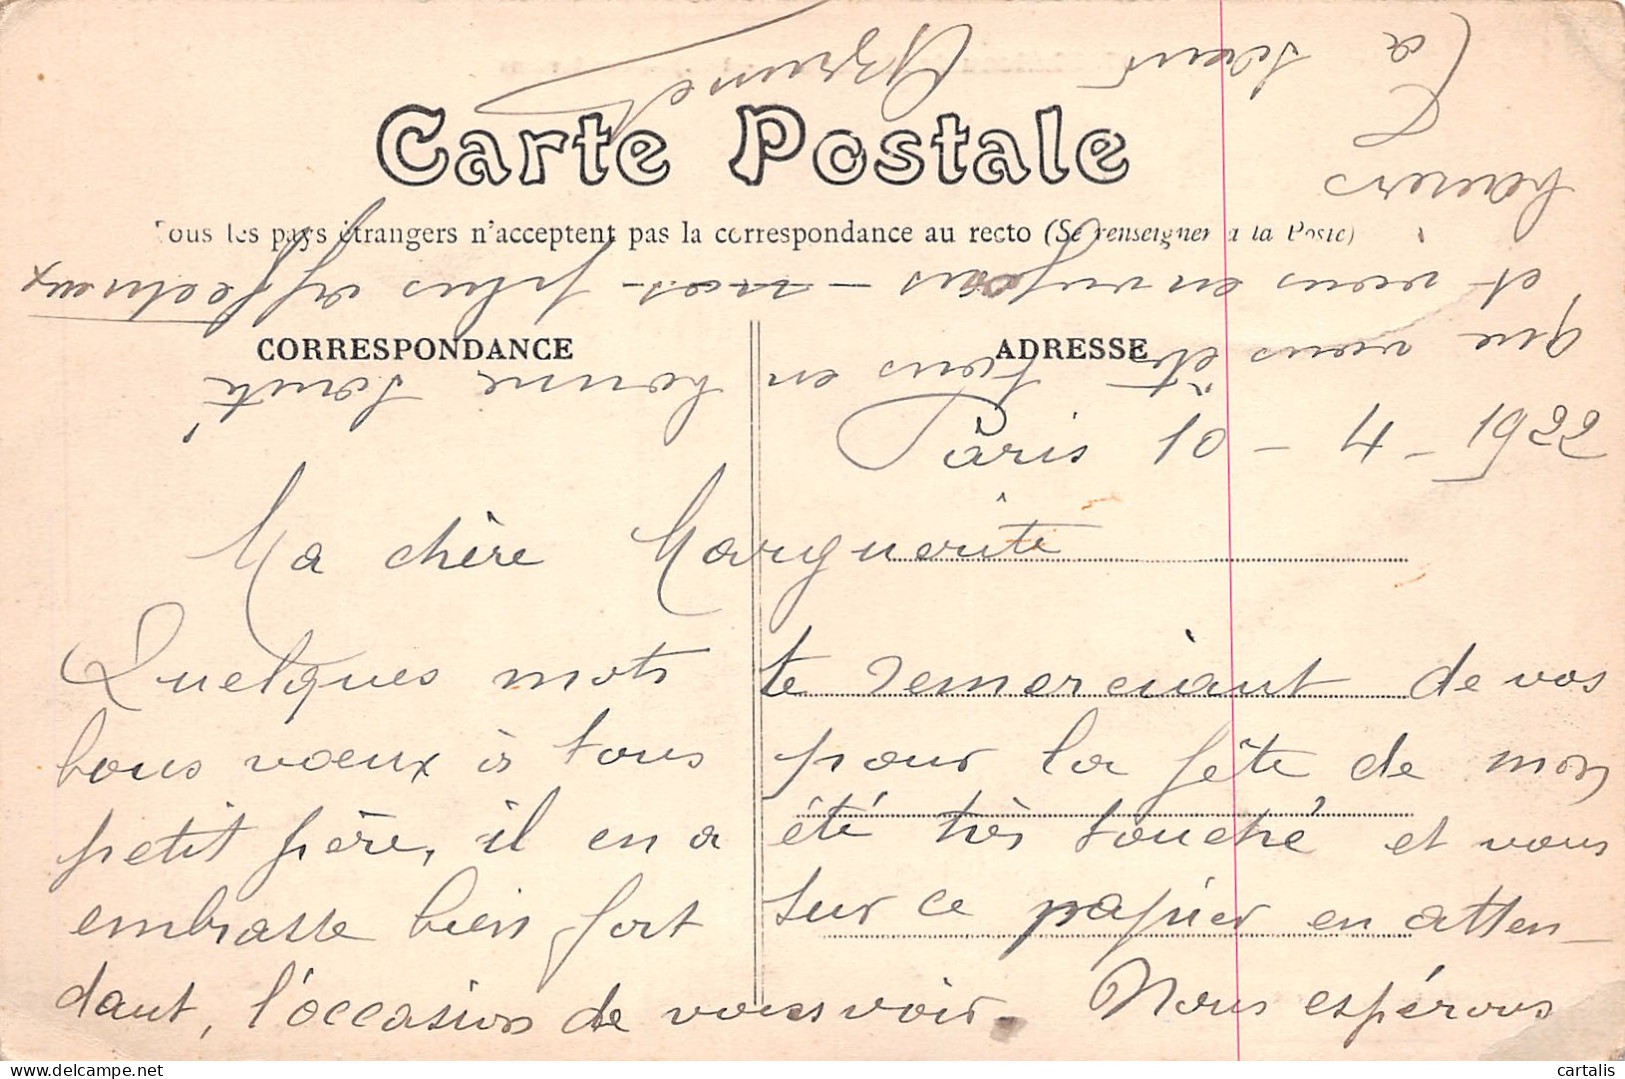 Carte Postale
Tous les pays étrangers n'acceptent pas la correspondance au recto (Se renseigner à la Poste)
CORRESPONDANCE
ADRESSE
Paris 10 - 4 - 1922
Ma chère Marguerite
Quelques mots te remerciant de vos
bons vœux à tous pour la fête de mon
petit père, il en a été très touché et vous
embrasse bien fort sur ce papier en atten-
dant, l'occasion de vous voir. Nous espérons
que vous êtes tous en bonne santé
et vous envoyons - nos - plus affectueux
baisers
Ta
cartalis